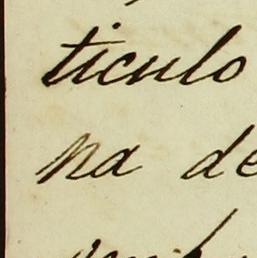 ticulo
na de